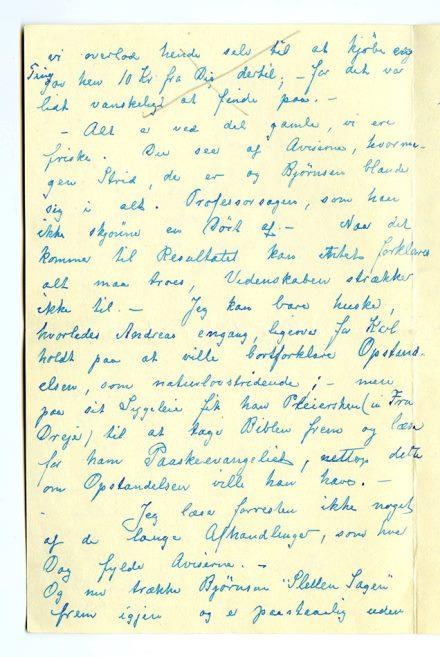 vi overlod hende selv til at kjöbe og
Tiny gav hen 10 Kr fra Dig dertil; – for det var
lidt vanskeligt at finde paa. –
– Alt er ved det gamle, vi ere
friske. Du seer af Aviserne, hvorme-
gen Strid, der er og Björnson blande
sig i alt. Professorsagen, som han
ikke skjönne en Dört af. – Naar det
komme til Resultatet kan forklares
alt maa troes, Videnskaben strækker
ikke til. – Jeg kan bare huske,
hvorledes Andreas engang, ligeover for Karl
holdt paa at ville bortforklare Opstand-
elsen, som naturlovstridende; – men
paa sit Sygeleie fik han Pleiersken (
) til at tage Biblen frem og læse
for ham Paaskeevangeliet, nettop dette
om Opstandelsen ville han have. –
- Jeg læse forresten ikke noget
af de lange Afhandlinger, som hver
Dag fylde Aviserne. –
Og nu trække Björnson "Sagen"
frem igjen og er paastaalig uden